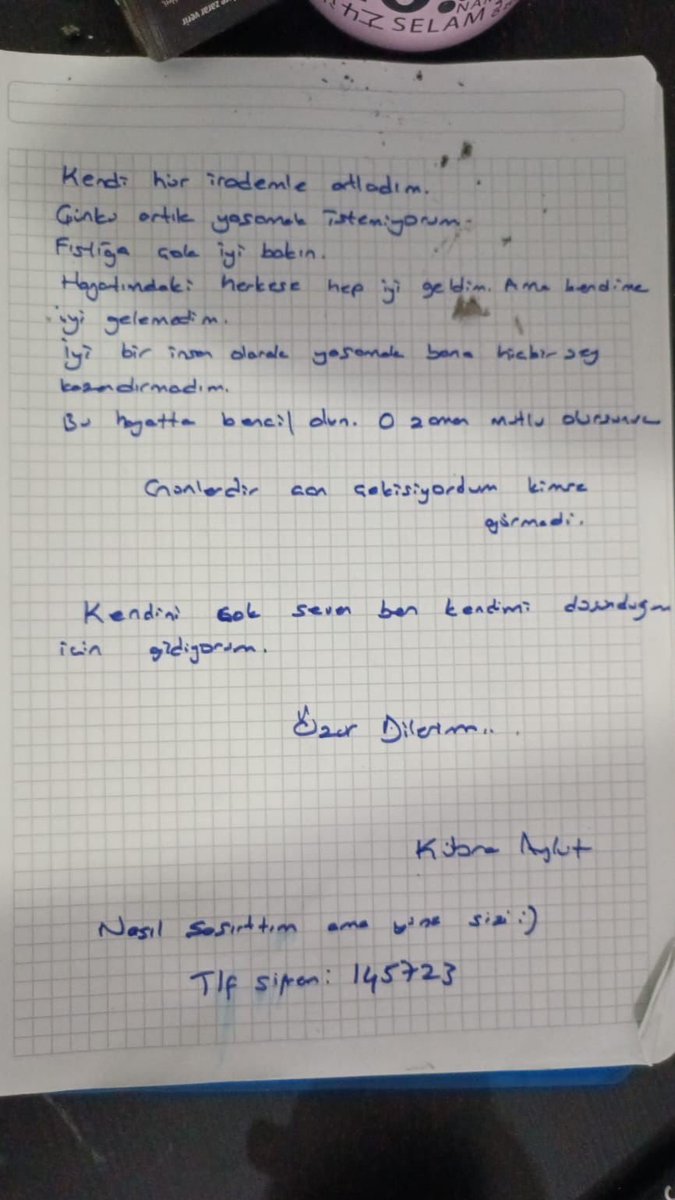 zarar verir
SELAM
Kendi hür irademle atladım.
Çünkü artık yaşamak istemiyorum.
Fıstığa çok iyi bakın.
Hayatımdaki herkese hep iyi geldim. Ama kendime
iyi gelemedim.
İyi bir insan olarak yaşamak bana hiçbir şey
kazandırmadım.
Bu hayatta bencil olun. O zaman mutlu olursunuz
Günlerdir can çekişiyordum kimse
görmedi.
Kendimi çok seven ben kendimi düşündüğüm
için gidiyorum.
Özür Dilerim...
Kübra Aykut
Nasıl şaşırttım ama yine sizi :)
Tlf şifrem: 145723